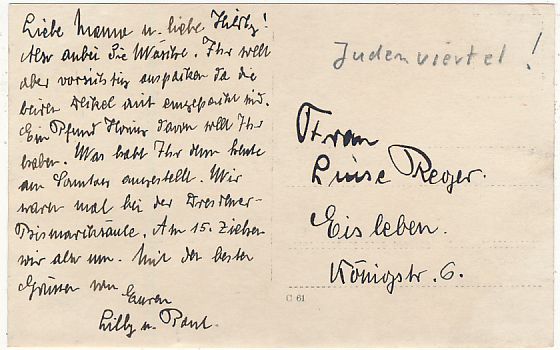 Liebe Mama u. liebe
Also anbei die Wäsche. Ihr sollt
aber vorsichtig auspacken da die
beiden mit eingepackt sind.
Ein Pfund Honig davon sollt Ihr
haben. Was habt Ihr denn heute
am Sonntag angestellt. Wir
waren mal bei der Dresdner-
Bismarcksäule. Am 15. Ziehen
wir also um. Mit den besten
Grüssen von Euren
Lilly u.
Judenviertel!
Frau
Luise Reger.
Eisleben.
Königstr. 6.
C 61